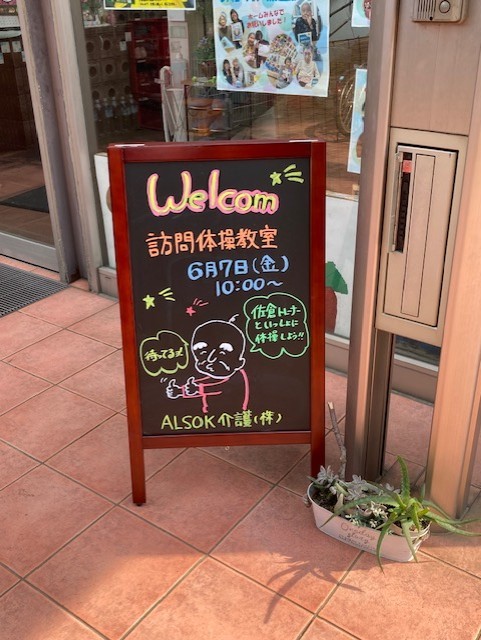 ホームみんなで
お祝いしました!
Welcom
訪問体操教室
6月7日(金)
10:00～
佐倉トレーナー
といっしょに
体操しよう!!
待ってるよ
ALSOK介護(株)